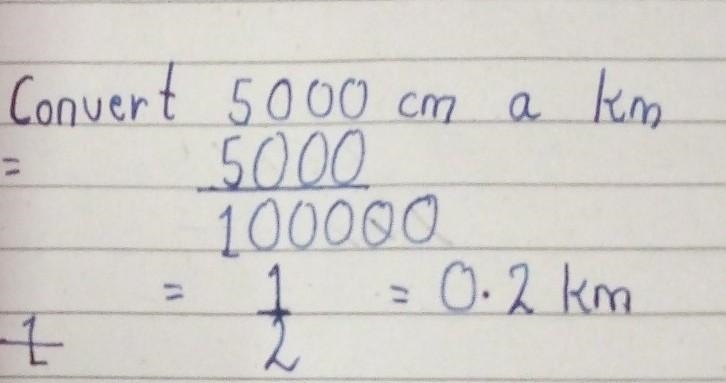 Convert 5000 cm a km
= 5000
100000
= 1/2 = 0.2 km
1